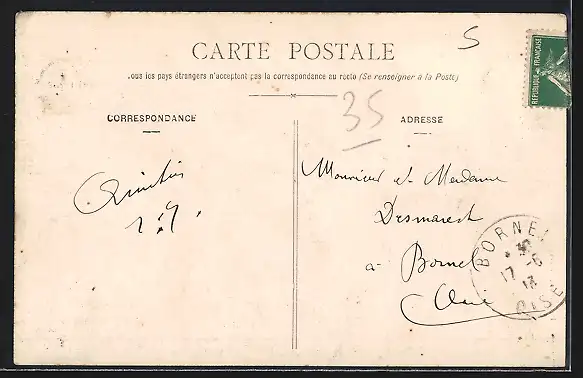 CARTE POSTALE
S
ous les pays étrangers n'acceptent pas la correspondance au recto (Se renseigner à la Poste)
35
CORRESPONDANCE
ADRESSE
REPUBLIQUE FRANÇAISE
Monsieur et Madame
Desmarest
à Bornel
Oise
BORNEL
17-6
OISE